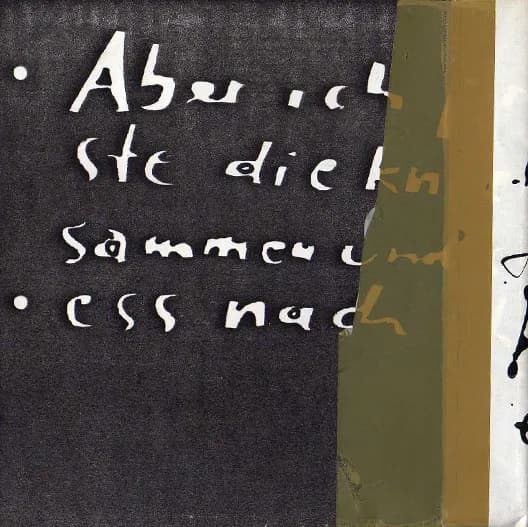 • Aber ich
ste die kn
sammen und
• ess nach